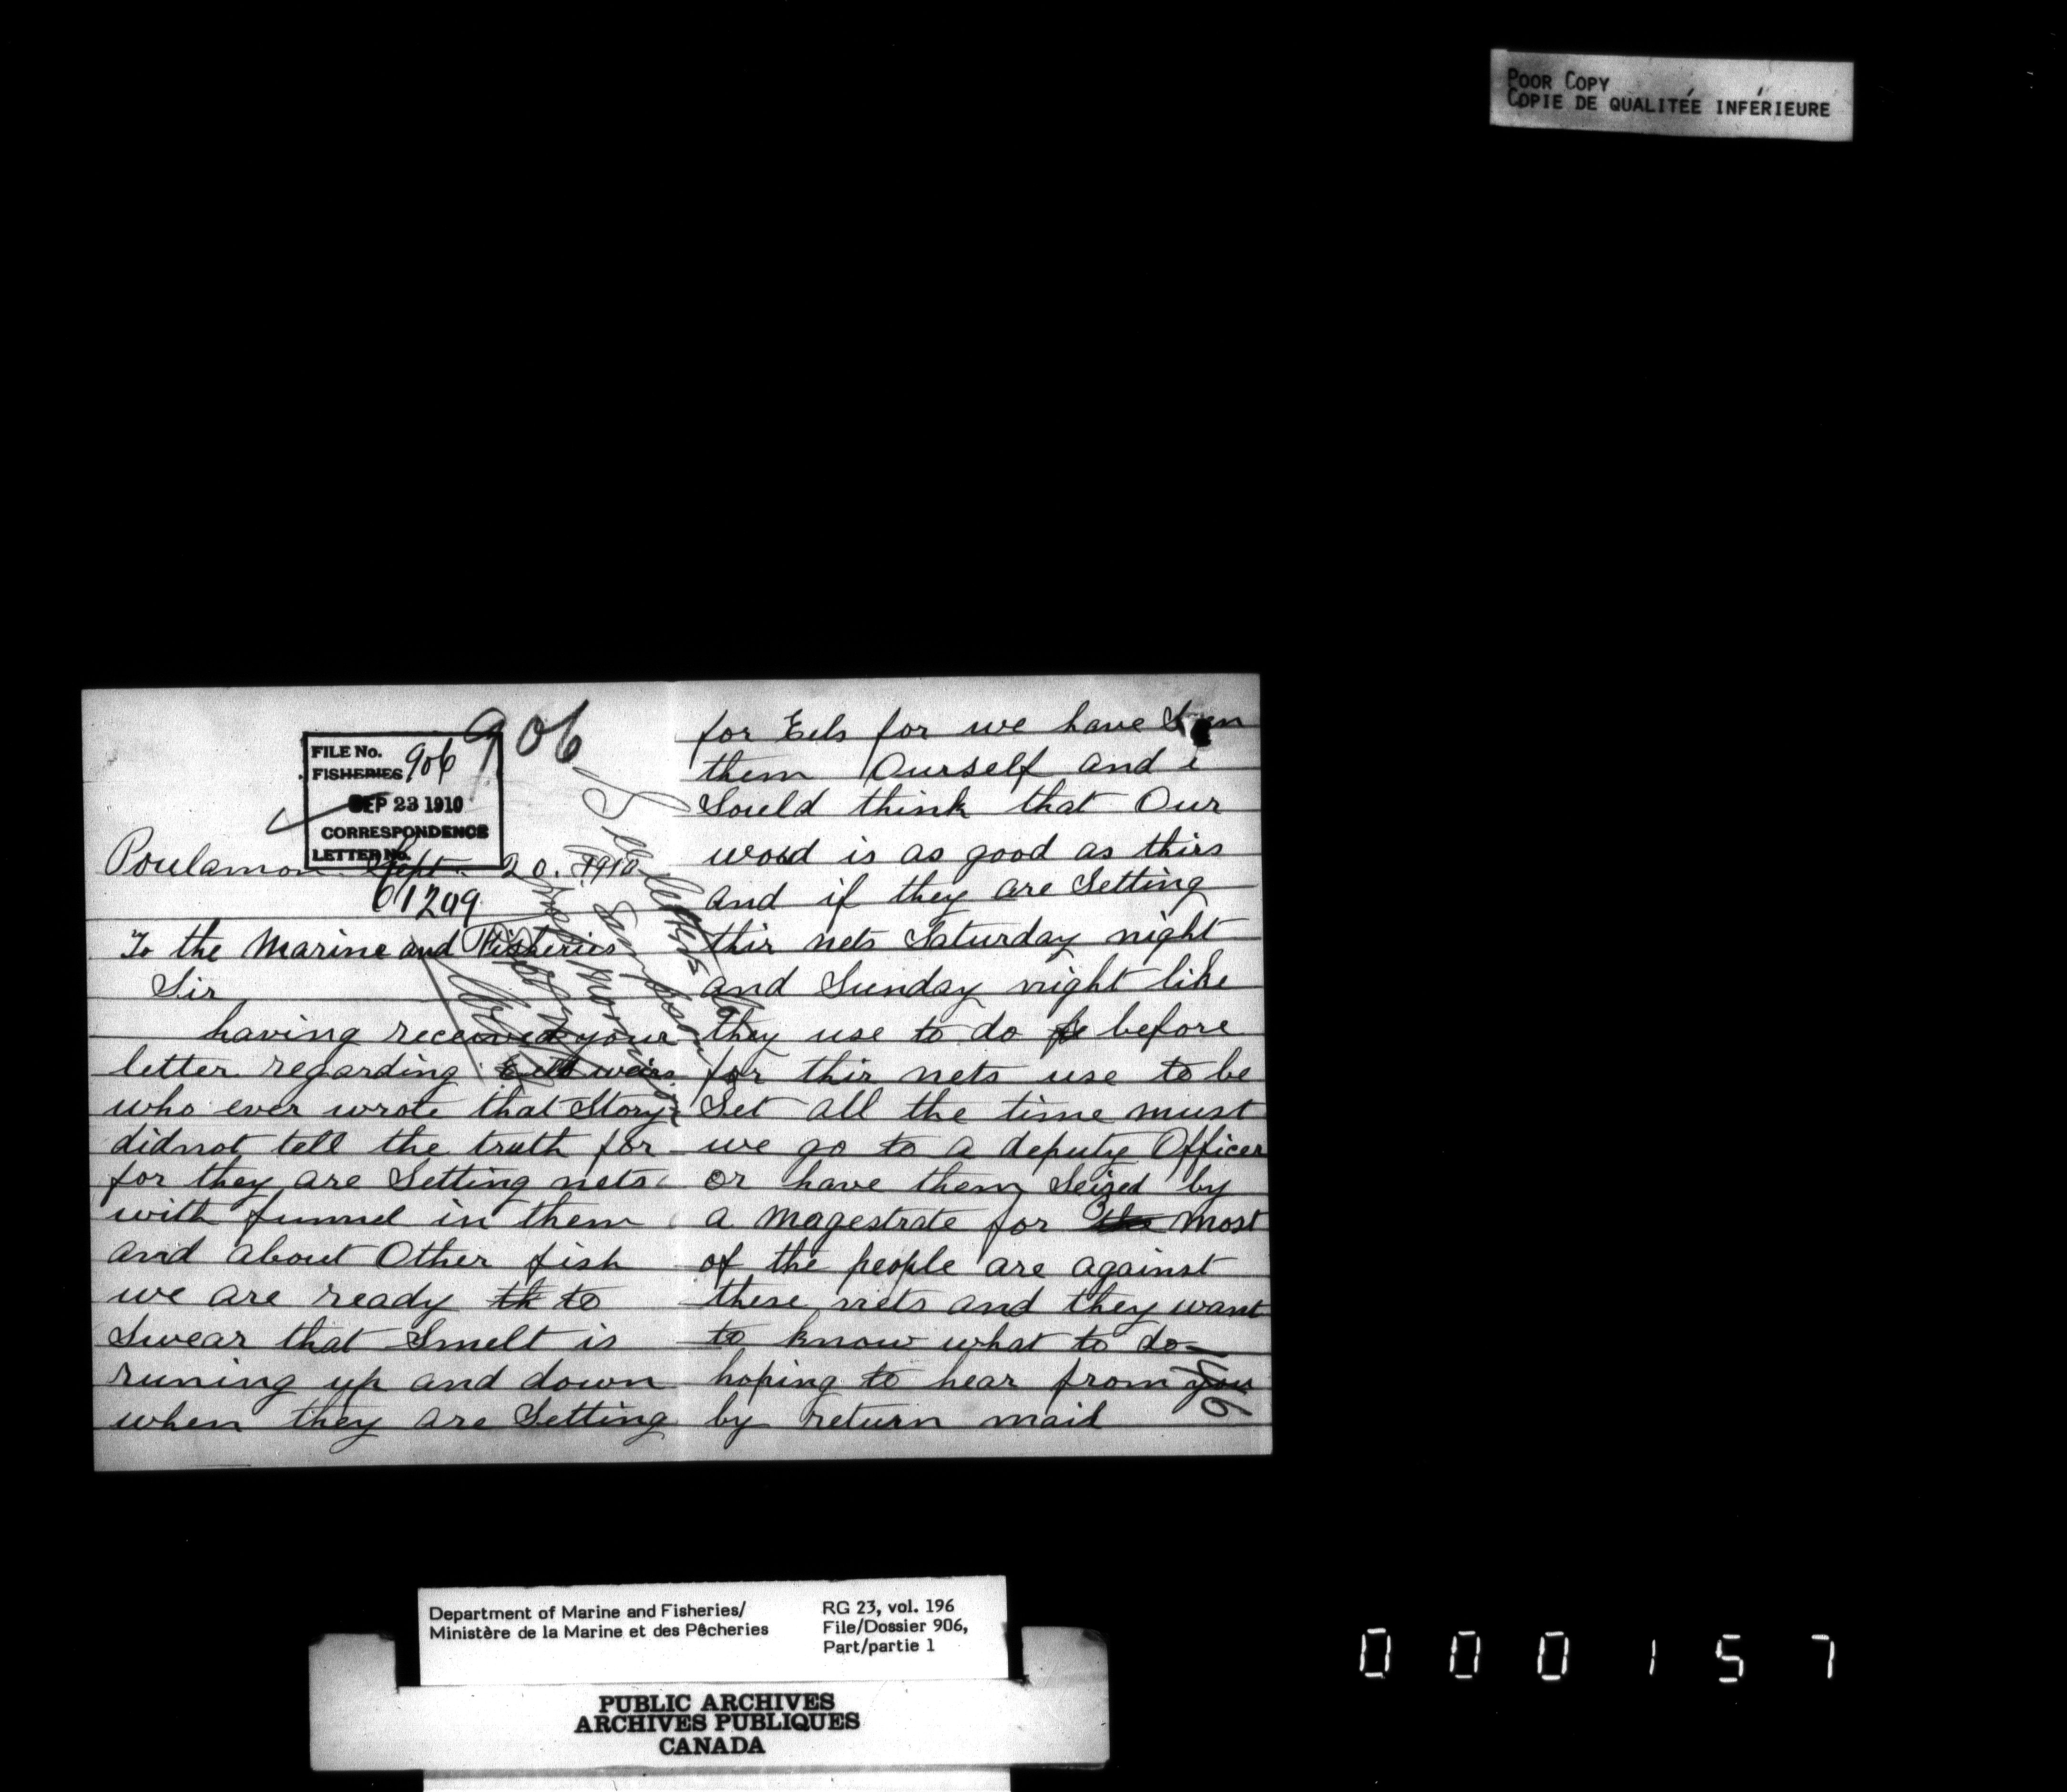 POOR COPY
COPIE DE QUALITÉE INFÉRIEURE
906
FILE No.
FISHERIES 906
SEP 23 1910
CORRESPONDENCE
LETTER No.
61209
Poulamon Sept. 20. 1910
To the Marine and Fisheries
Sir
having received your
letter regarding Eels weirs
who ever wrote that Story
didnot tell the truth for
for they are Setting nets
with funnel in them
and about Other fish
we are ready th to
Swear that Smelt is
runing up and down
when they are Setting
for Eels for we have Seen
them Ourself and i
Sould think that Our
word is as good as thirs
and if they are Setting
thir nets Saturday night
and Sunday night like
they use to do fe before
for thir nets use to be
Set all the time must
we go to a deputy Officer
or have them Seized by
a Magestrate for the most
of the people are against
these nets and they want
to know what to do
hoping to hear from you
by return mail
Department of Marine and Fisheries/
Ministère de la Marine et des Pêcheries
RG 23, vol. 196
File/Dossier 906,
Part/partie 1
PUBLIC ARCHIVES
ARCHIVES PUBLIQUES
CANADA
000157